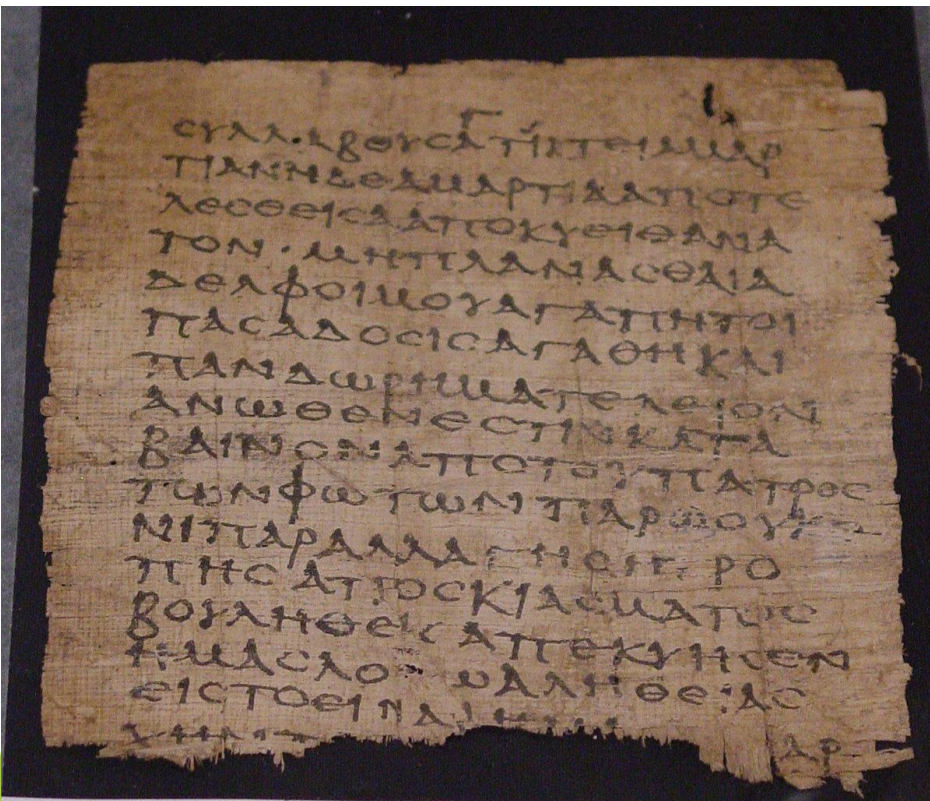 ϹΥΛΛ·ΑΒΟΥϹΑΤΙΚΤΕΙΑΜΑΡ
ΤΙΑΝΗΔΕΑΜΑΡΤΙΑΑΠΟΤΕ
ΛΕϹΘΕΙϹΑΑΠΟΚΥΕΙΘΑΝΑ
ΤΟΝ·ΜΗΠΛΑΝΑϹΘΑΙΑ
ΔΕΛΦΟΙΜΟΥΑΓΑΠΗΤΟΙ
ΠΑϹΑΔΟϹΙϹΑΓΑΘΗΚΑΙ
ΠΑΝΔΩΡΗΜΑΤΕΛΕΙΟΝ
ΑΝΩΘΕΝΕϹΤΙΝΚΑΤΑ
ΒΑΙΝΟΝΑΠΟΤΟΥΠΑΤΡΟϹ
ΤΩΝΦΩΤΩΝΠΑΡΩΟΥΚΕ
ΝΙΠΑΡΑΛΛΑΓΗϹΗΤΡΟ
ΠΗϹΑΠΟϹΚΙΑϹΜΑΤΟϹ
ΒΟΥΛΗΘΕΙϹΑΠΕΚΥΗϹΕΝ
ΗΜΑϹΛΟΓΩΑΛΗΘΕΙΑϹ
ΕΙϹΤΟΕΙΝΑΙ